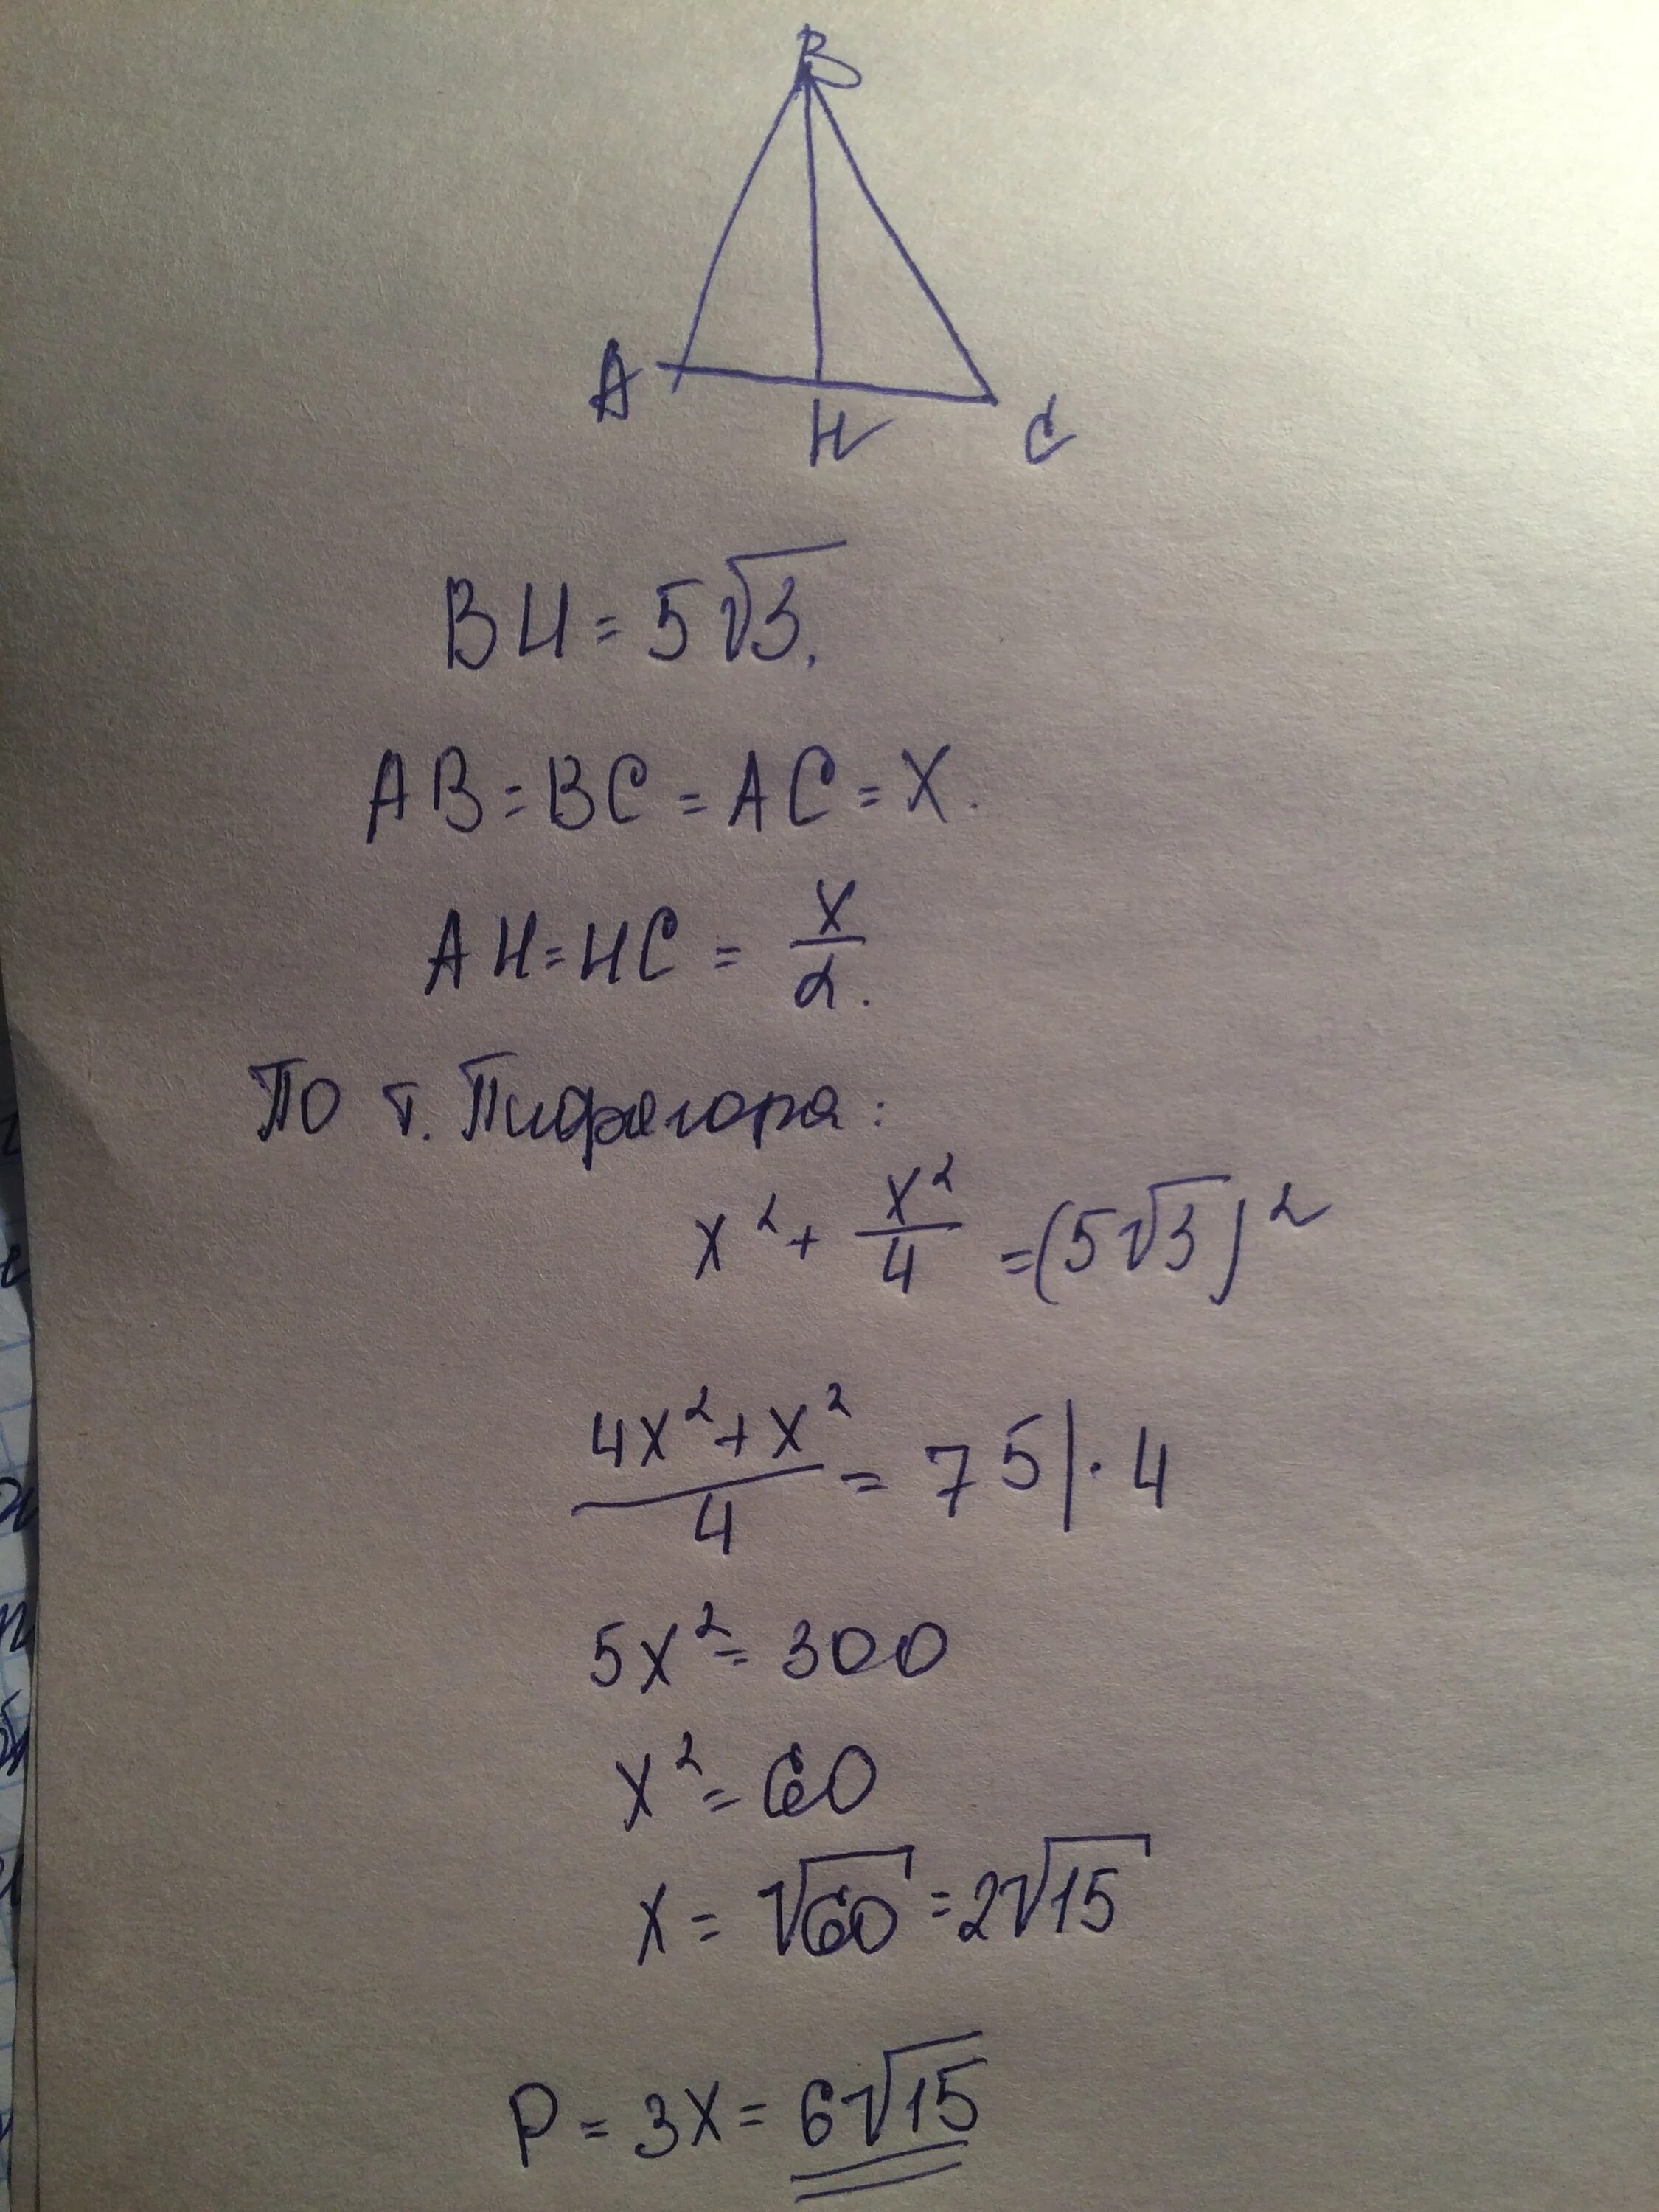 B
A
H
C
BH = 5√3.
AB = BC = AC = x.
AH = HC = x/2.
По т. Пифагора:
x² + x²/4 = (5√3)²
(4x² + x²)/4 = 75 | · 4
5x² = 300
x² = 60
x = √60 = 2√15
P = 3x = 6√15